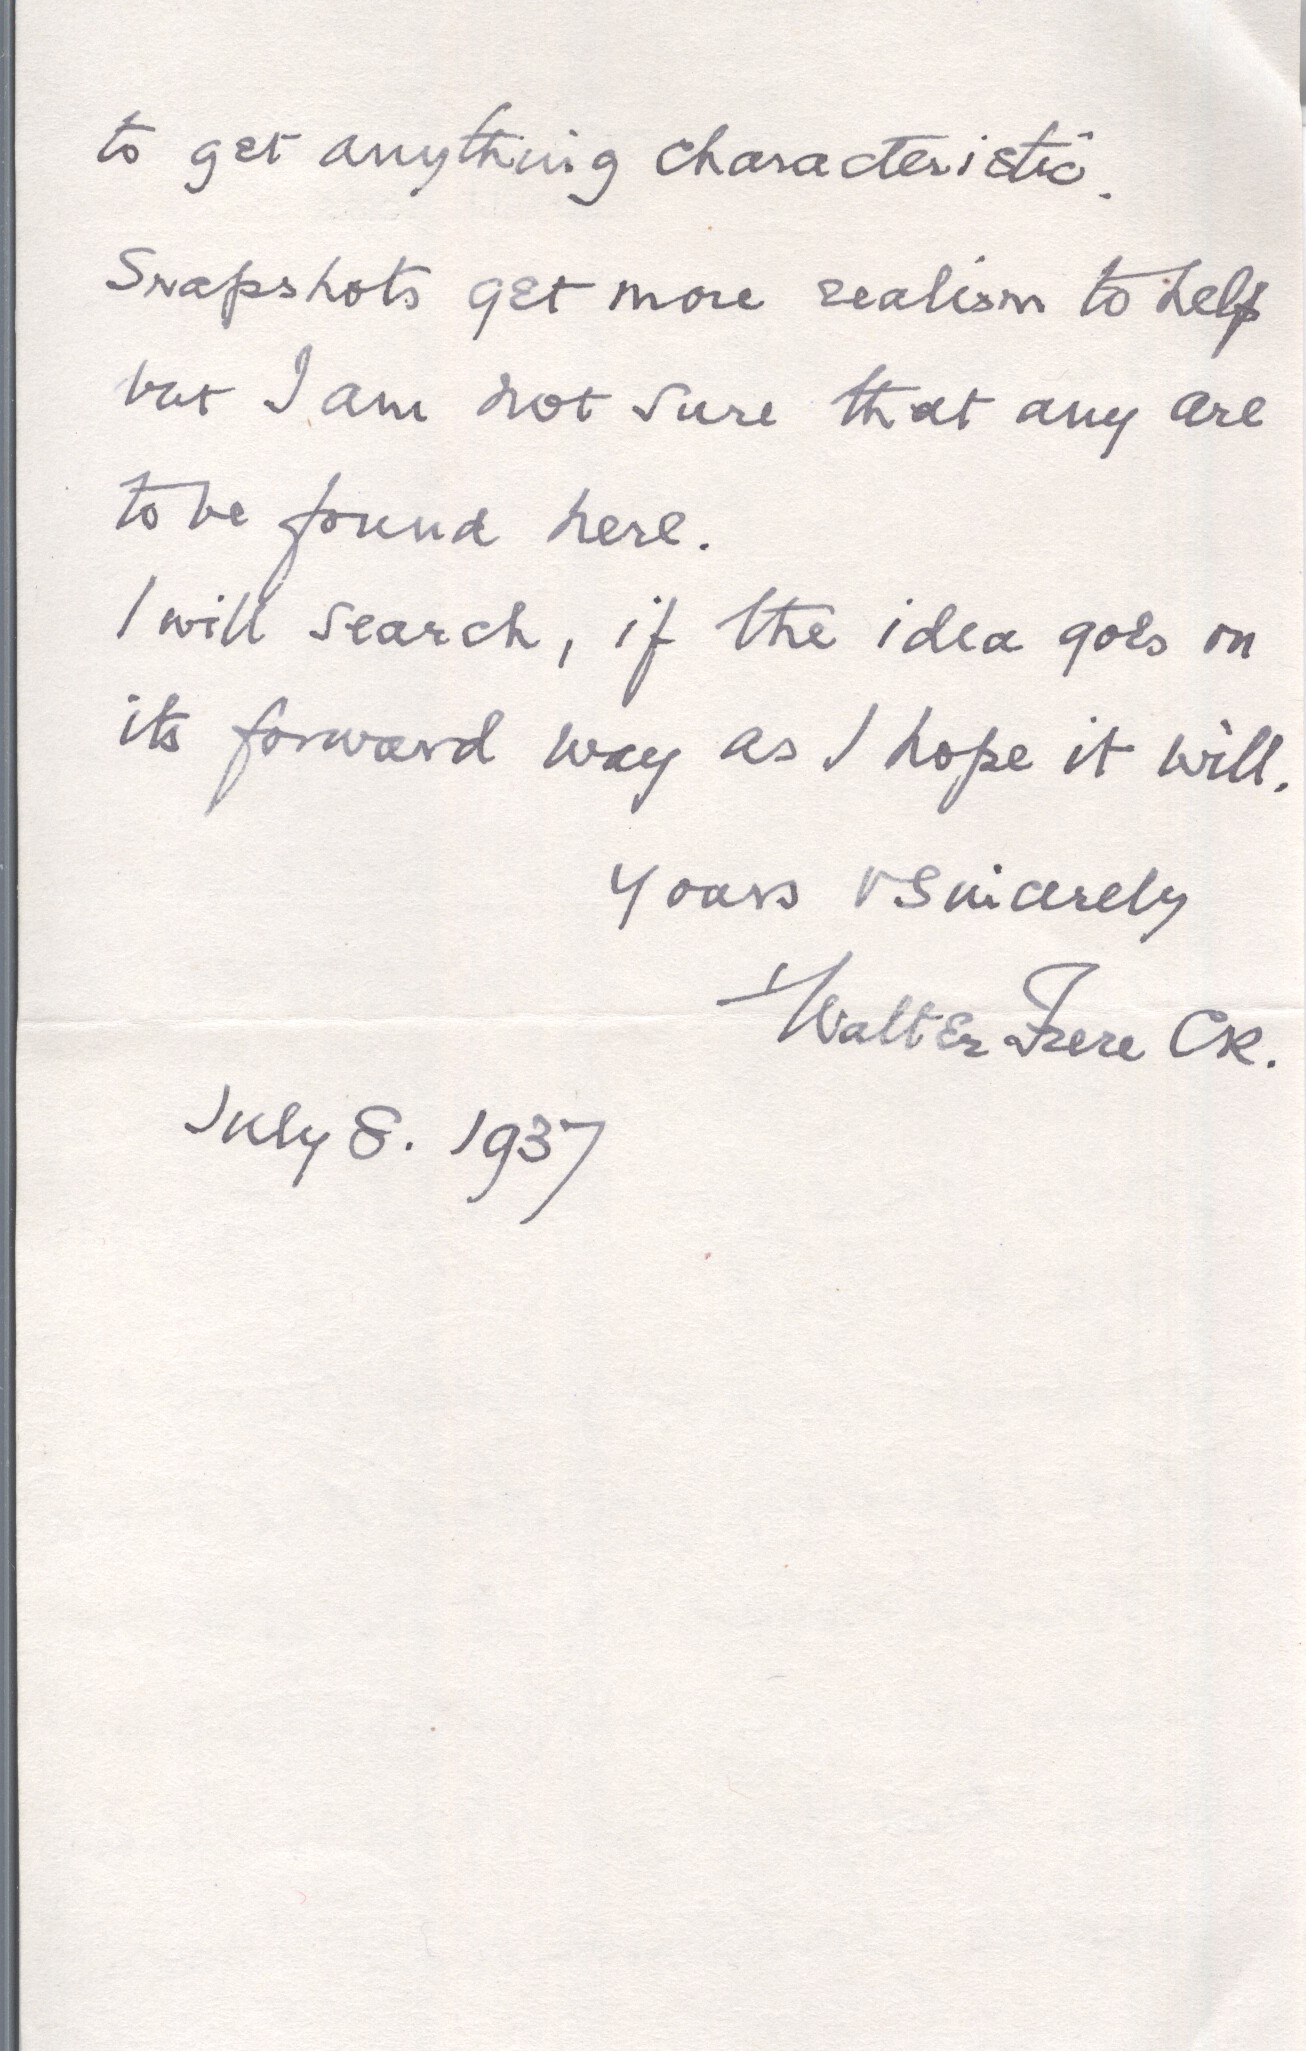 to get anything characteristic.
Snapshots get more realism to help
but I am not sure that any are
to be found here.
I will search, if the idea goes on
its forward way as I hope it will.
Yours v sincerely
+Walter Frere CR.
July 8. 1937